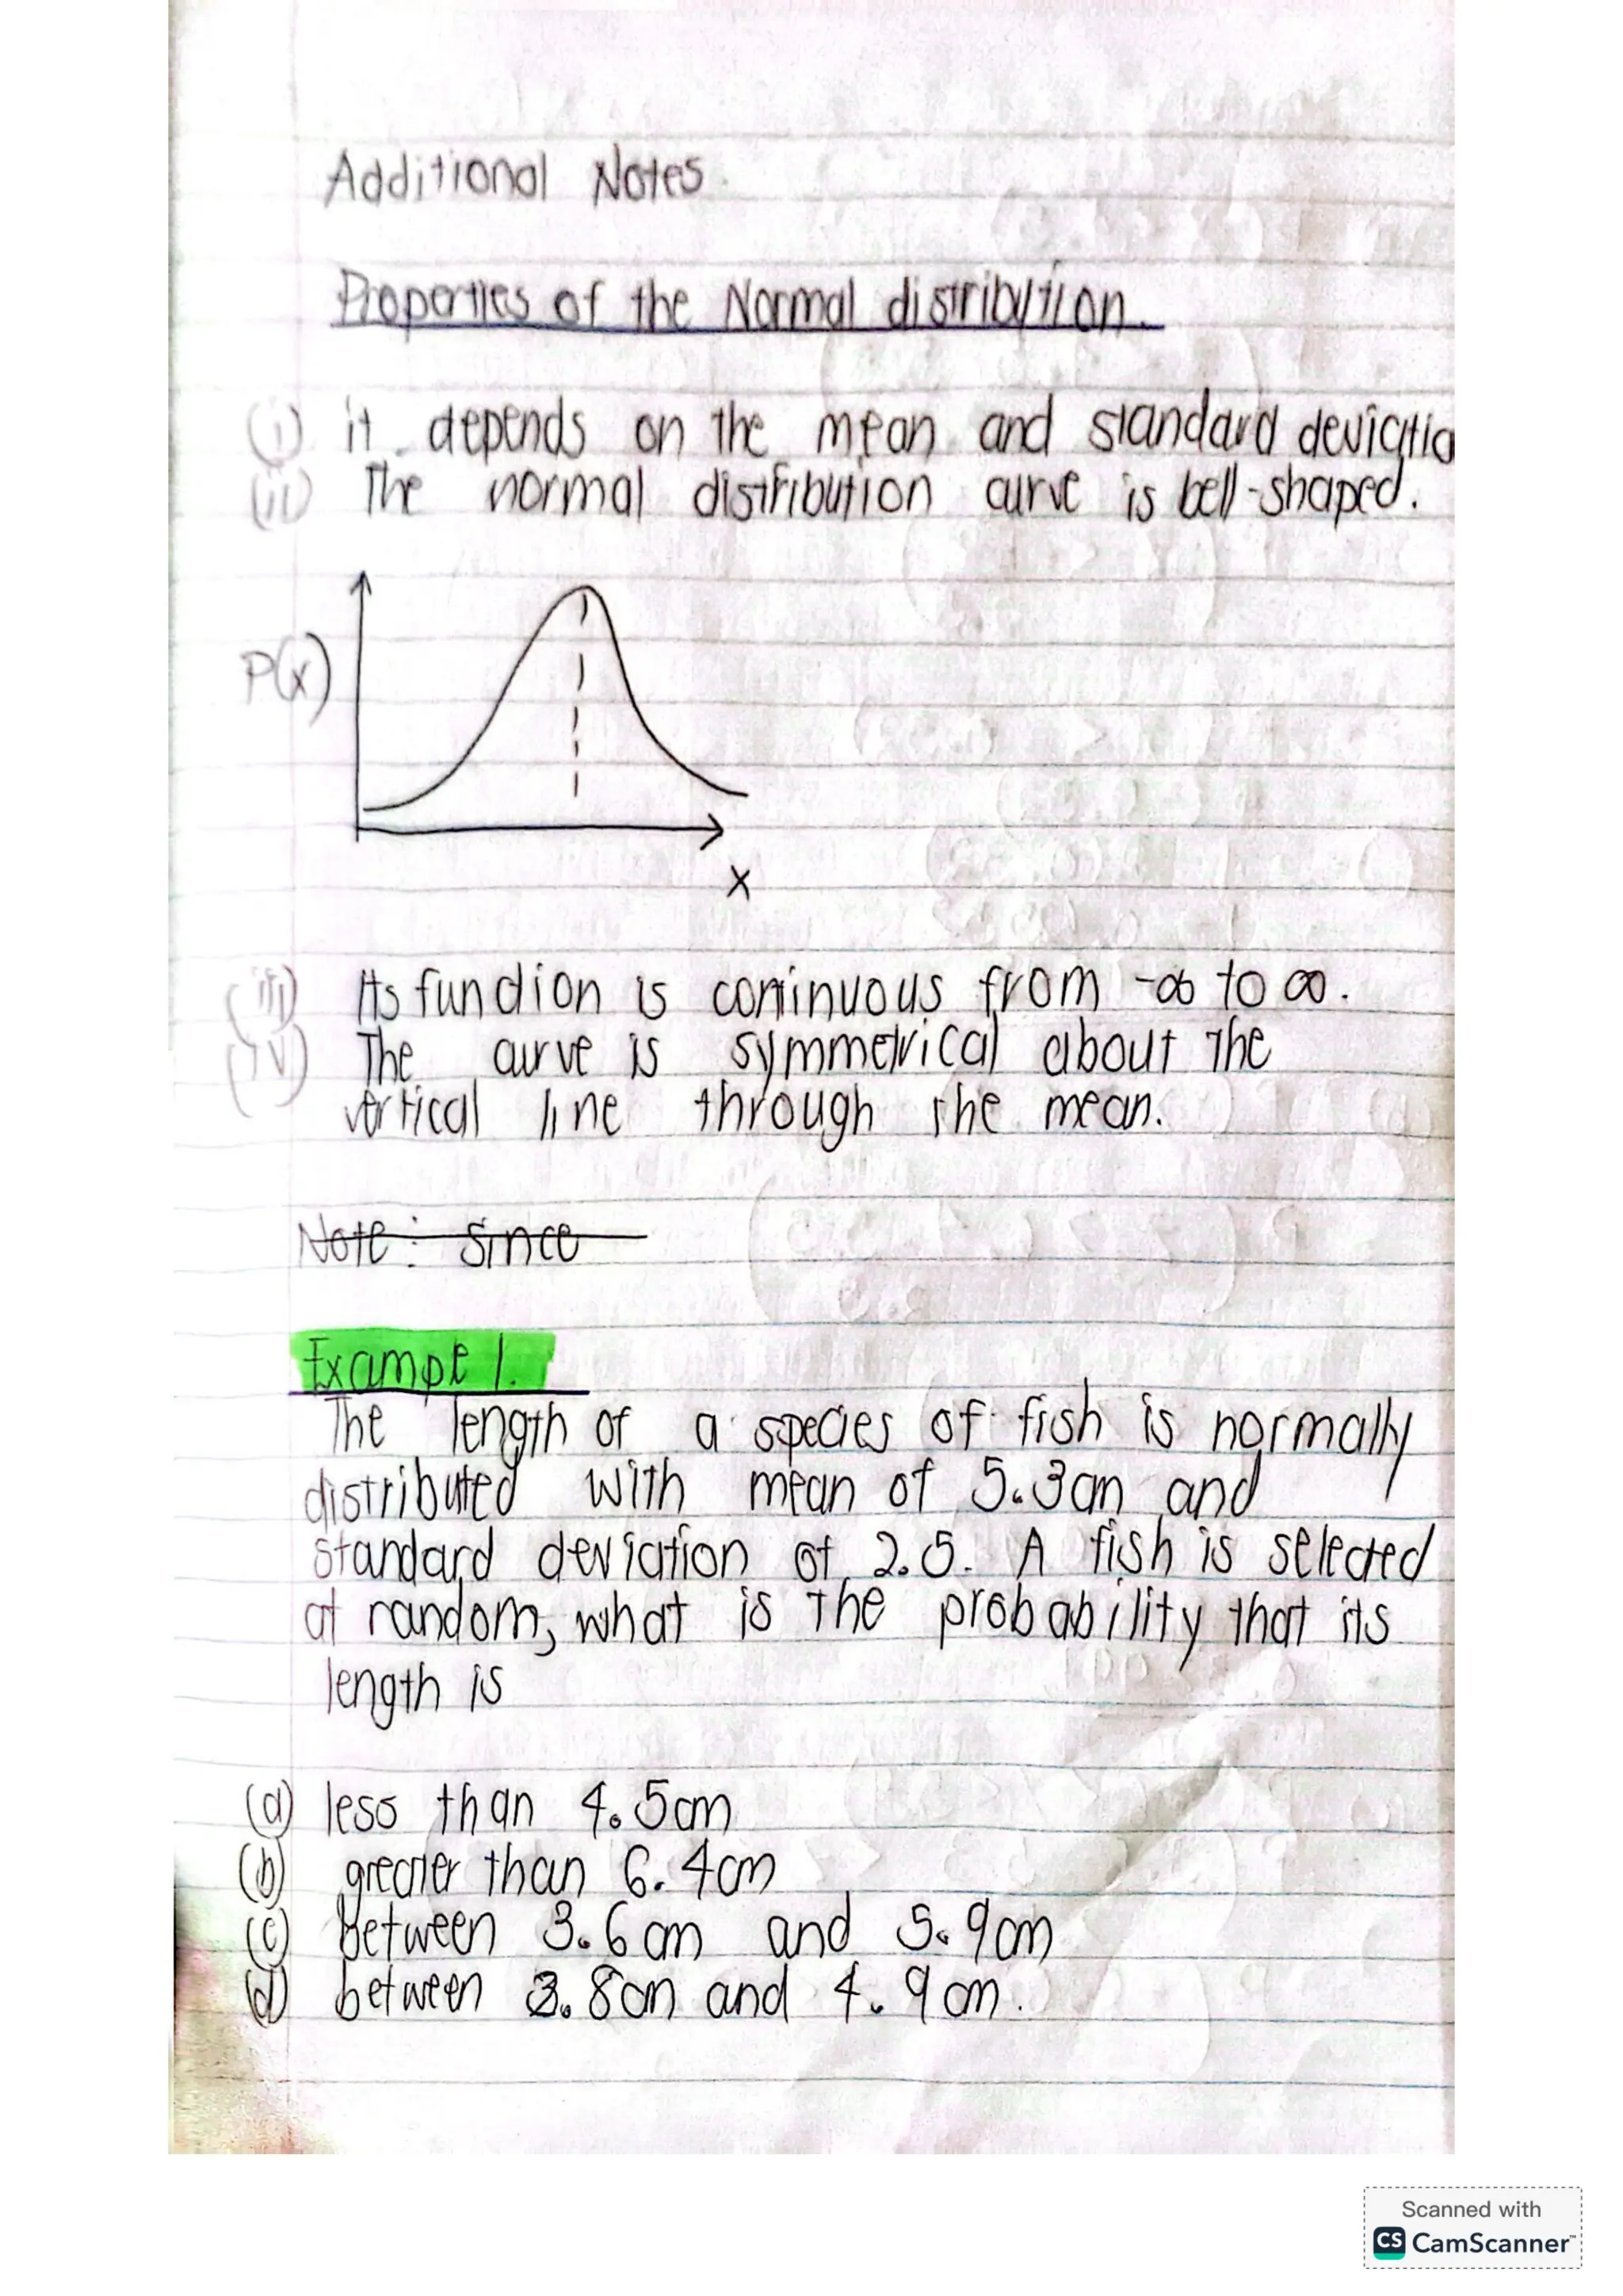 Additional Notes.
Properties of the Normal distribution.
(i) it depends on the mean and standard deviatio
(ii) The normal distribution curve is bell-shaped.
P(x)
x
(iii) Its function is continuous from -∞ to ∞.
(iv) The curve is symmetrical about the
vertical line through the mean.
Note: Since
Example 1.
The length of a species of fish is normally
distributed with mean of 5.3cm and
standard deviation of 2.5. A fish is selected
at random, what is the probability that its
length is
(a) less than 4.5cm
(b) greater than 6.4cm
(c) Between 3.6cm and 5.9cm
(d) between 3.8cm and 4.9cm.
Scanned with
CS CamScanner™